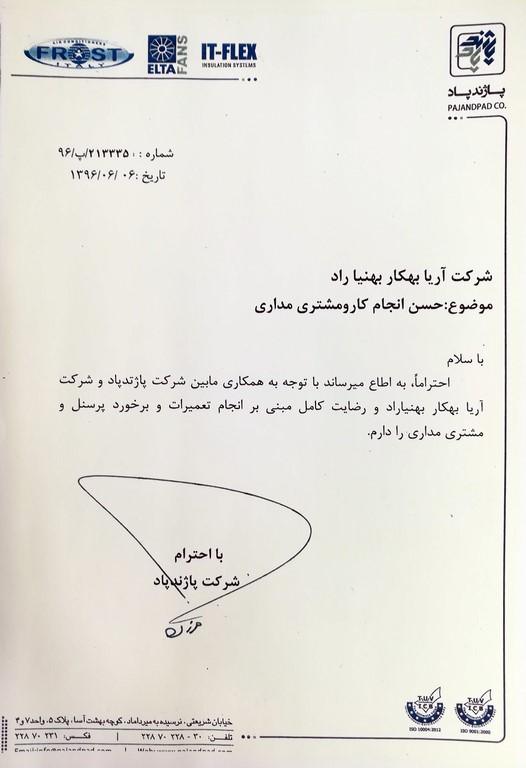 AIR CONDITIONERS
FROST
ITALY
ELTA
FANS
IT-FLEX
INSULATION SYSTEMS
پاژندپاد
PAJANDPAD CO.
شماره : ۲۱۳۳۳۵/پ/۹۶
تاریخ : ۰۶ /۱۳۹۶/۰۶
شرکت آریا بهکار بهنیا راد
موضوع:حسن انجام کارومشتری مداری
با سلام
احتراماً، به اطاع میرساند با توجه به همکاری مابین شرکت پاژندپاد و شرکت
آریا بهکار بهنیاراد و رضایت کامل مبنی بر انجام تعمیرات و برخورد پرسنل و
مشتری مداری را دارم.
با احترام
شرکت پاژندپاد
T.U.V
I.C.B
ISO 10004:2012
T.U.V
I.C.B
ISO 9001:2008
خیابان شریعتی، نرسیده به میرداماد، کوچه بهشت آسا، پلاک ۵، واحد ۷ و ۴
تلفن: ۳۰ - ۲۲۸ ۷۰ ۲۲۸ | فکس: ۲۳۱ ۷۰ ۲۲۸
Email:info@pajandpad.com | Web: www.pajandpad.com